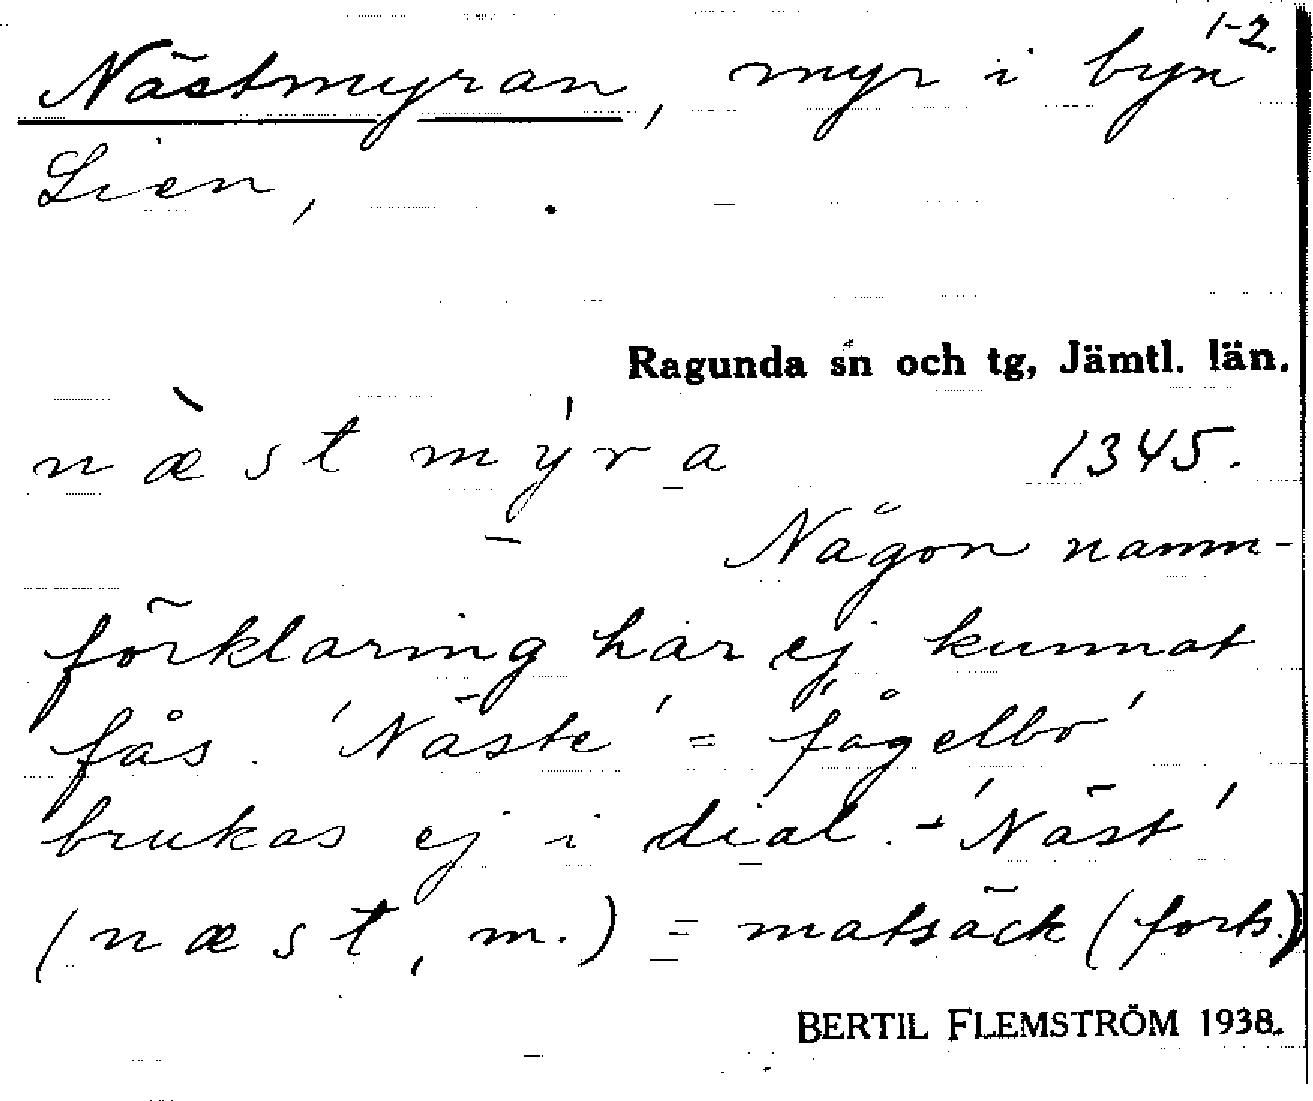 1-2.
Nästmyran, myr i byn
Lien,
Ragunda sn och tg, Jämtl. län.
næ̀st mýra 1345.
Någon namn-
förklaring har ej kunnat
fås. 'Näste' = fågelbo'
brukas ej i dial. - 'Näst'
(næst, m.) = matsäck (forts.)
BERTIL FLEMSTRÖM 1938.